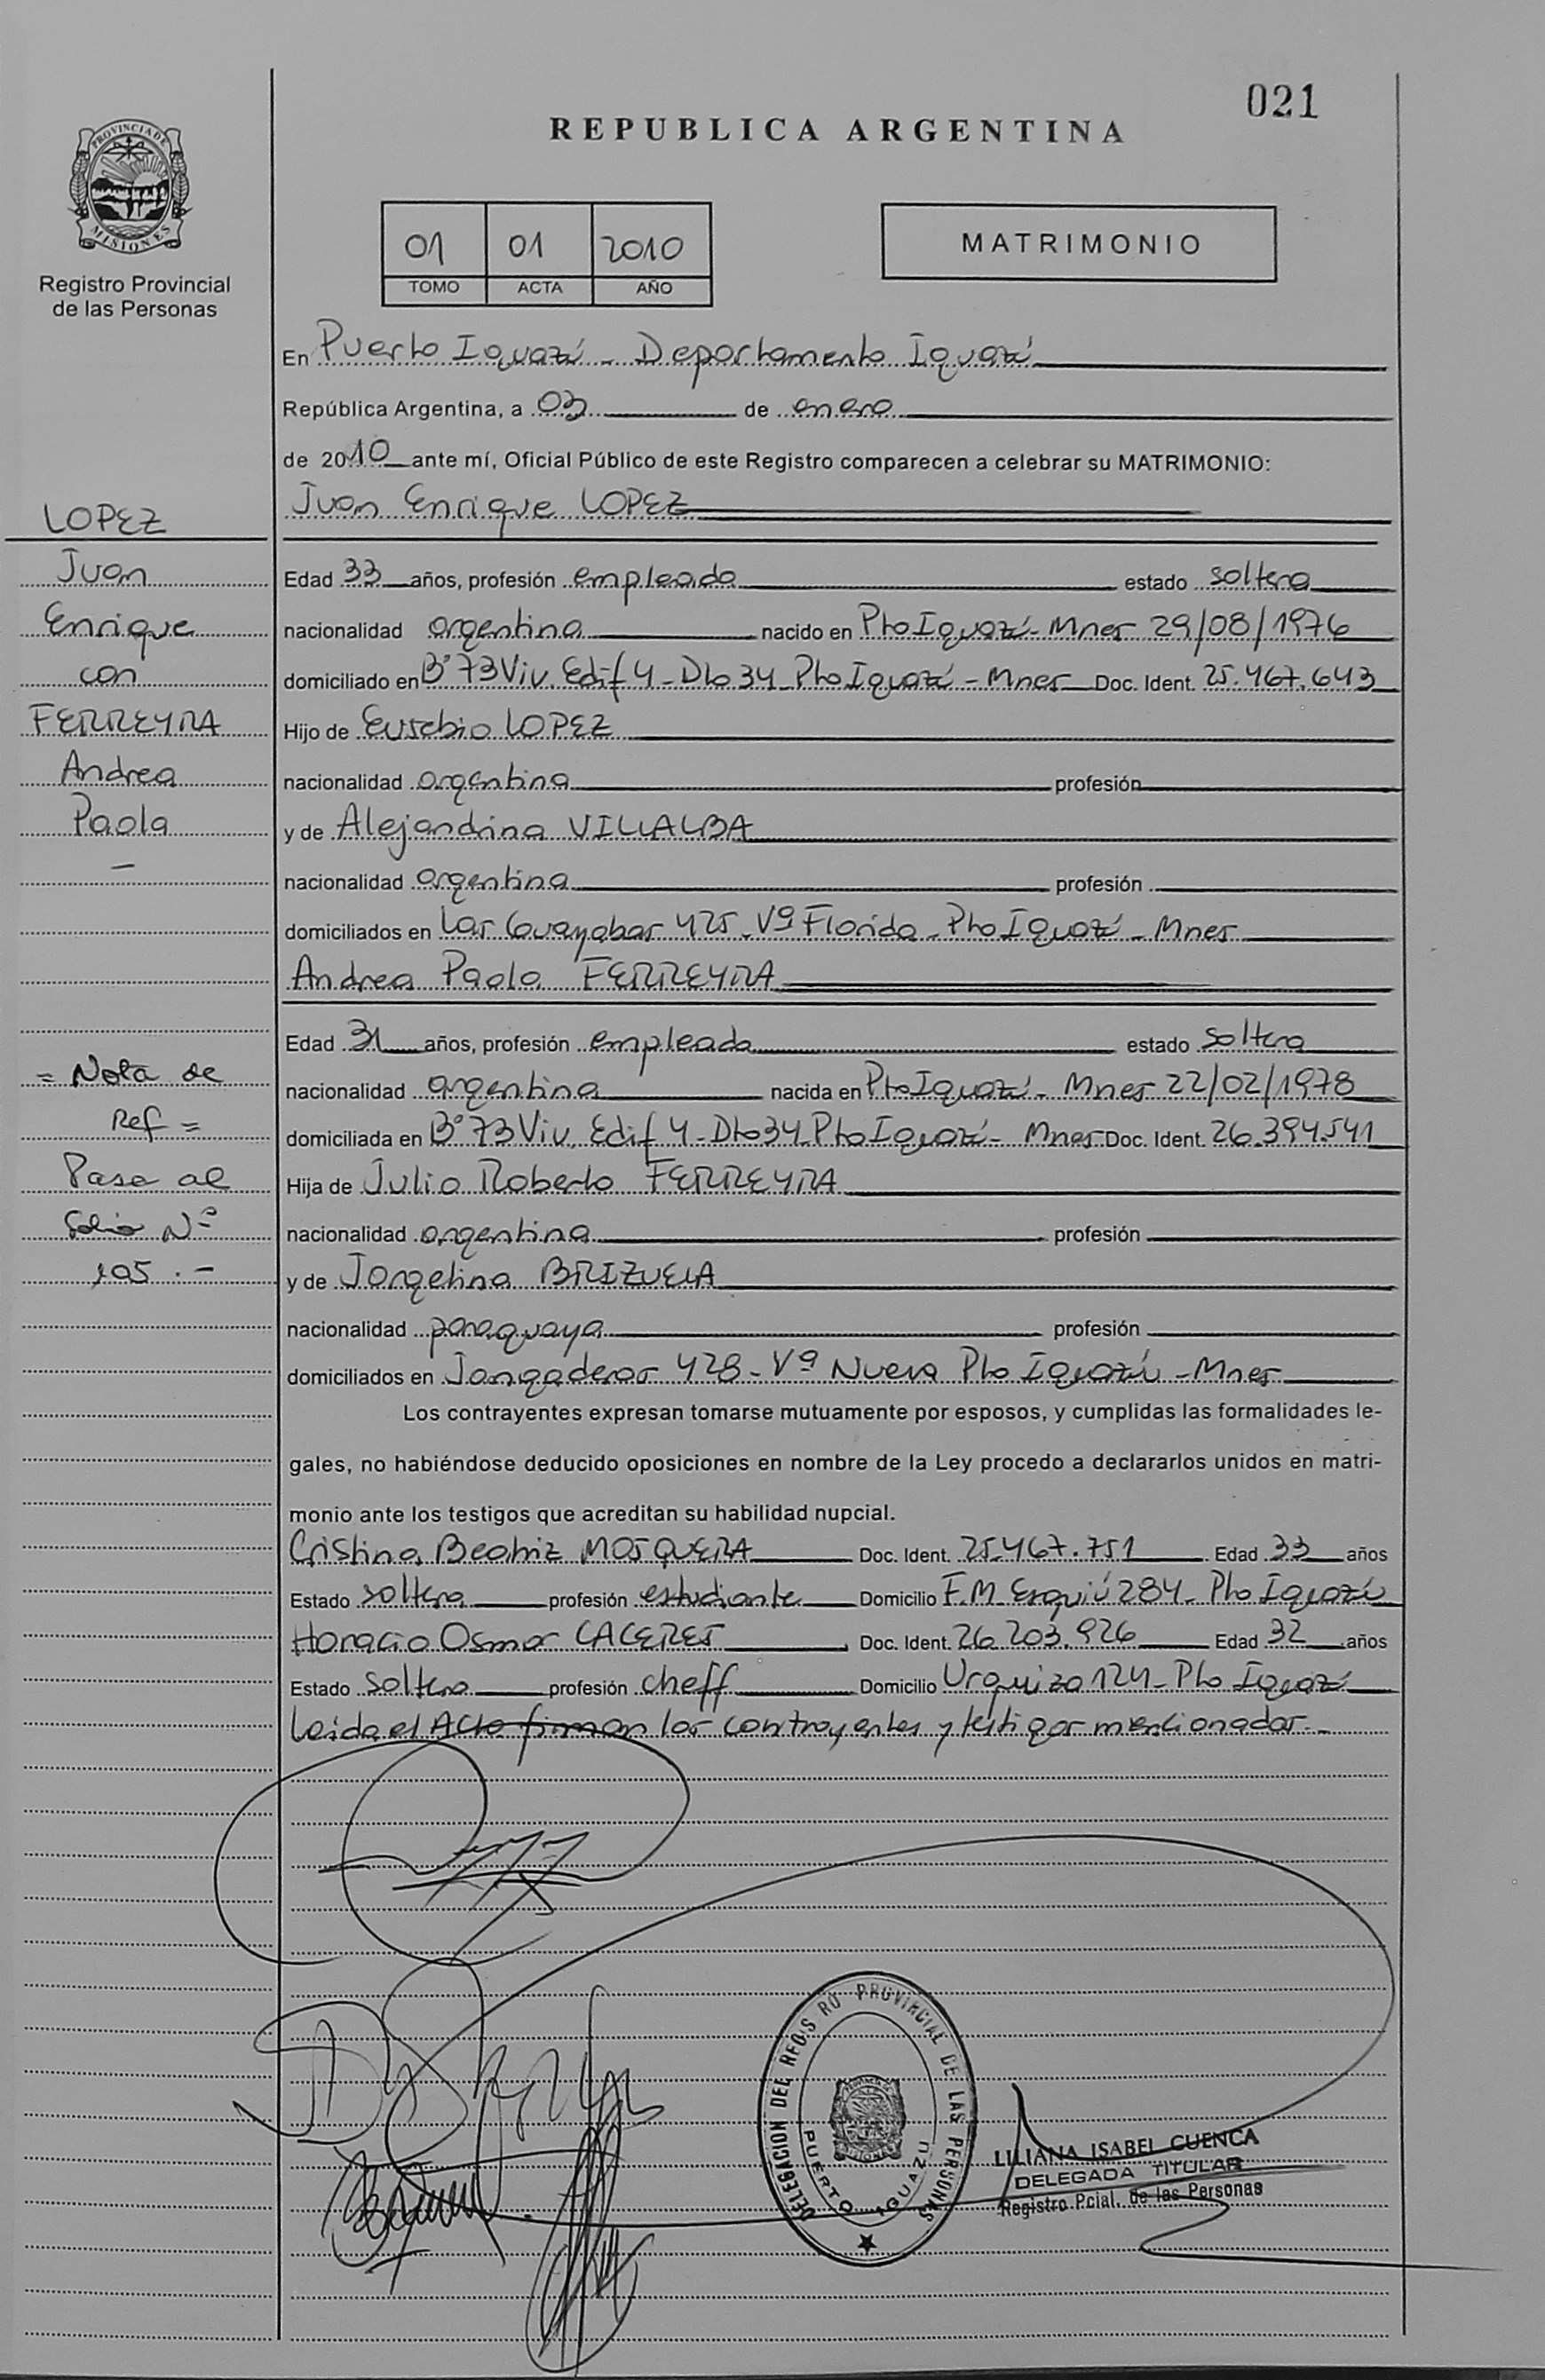 021
REPUBLICA ARGENTINA
PROVINCIA DE
MISIONES
Registro Provincial
de las Personas
01 01 2010
TOMO ACTA AÑO
MATRIMONIO
En Puerto Iguazú - Departamento Iguazú
República Argentina, a 03 de enero
de 2010 ante mí, Oficial Público de este Registro comparecen a celebrar su MATRIMONIO:
Juan Enrique LOPEZ
Edad 33 años, profesión empleado estado soltero
nacionalidad argentina nacido en Pto Iguazú - Mnes 29/08/1976
domiciliado en B° 73 Viv. Edif 4 - Dto 34 - Pto Iguazú - Mnes Doc. Ident. 25.467.643
Hijo de Eusebio LOPEZ
nacionalidad argentina profesión
y de Alejandrina VILLALBA
nacionalidad argentina profesión
domiciliados en Los Guayabos 425 - Vª Florida - Pto Iguazú - Mnes
Andrea Paola FERREYRA
Edad 31 años, profesión empleada estado soltera
nacionalidad argentina nacida en Pto Iguazú - Mnes 22/02/1978
domiciliada en B° 73 Viv. Edif 4 - Dto 34 - Pto Iguazú - Mnes Doc. Ident. 26.394.541
Hija de Julio Roberto FERREYRA
nacionalidad argentina profesión
y de Jorgelina BRIZUELA
nacionalidad paraguaya profesión
domiciliados en Jangaderos 428 - Vª Nueva Pto Iguazú - Mnes
Los contrayentes expresan tomarse mutuamente por esposos, y cumplidas las formalidades le-
gales, no habiéndose deducido oposiciones en nombre de la Ley procedo a declararlos unidos en matri-
monio ante los testigos que acreditan su habilidad nupcial.
Cristina Beatriz MOSQUERA Doc. Ident. 25.467.751 Edad 33 años
Estado soltera profesión estudiante Domicilio F.M. Esquiú 284 - Pto Iguazú
Horacio Osmar CACERES Doc. Ident. 26.203.926 Edad 32 años
Estado soltero profesión cheff Domicilio Urquiza 124 - Pto Iguazú
Leida el Acta firman los contrayentes y testigos mencionados.-
LOPEZ
Juan
Enrique
con
FERREYRA
Andrea
Paola
-
= Nota de
Ref =
Pasa al
folio Nº
105 . -
DELEGACION DEL REGIS RO PROVINCIAL DE LAS PERSONAS
PUERTO IGUAZU
LILIANA ISABEL CUENCA
DELEGADA TITULAR
Registro Pcial. de las Personas